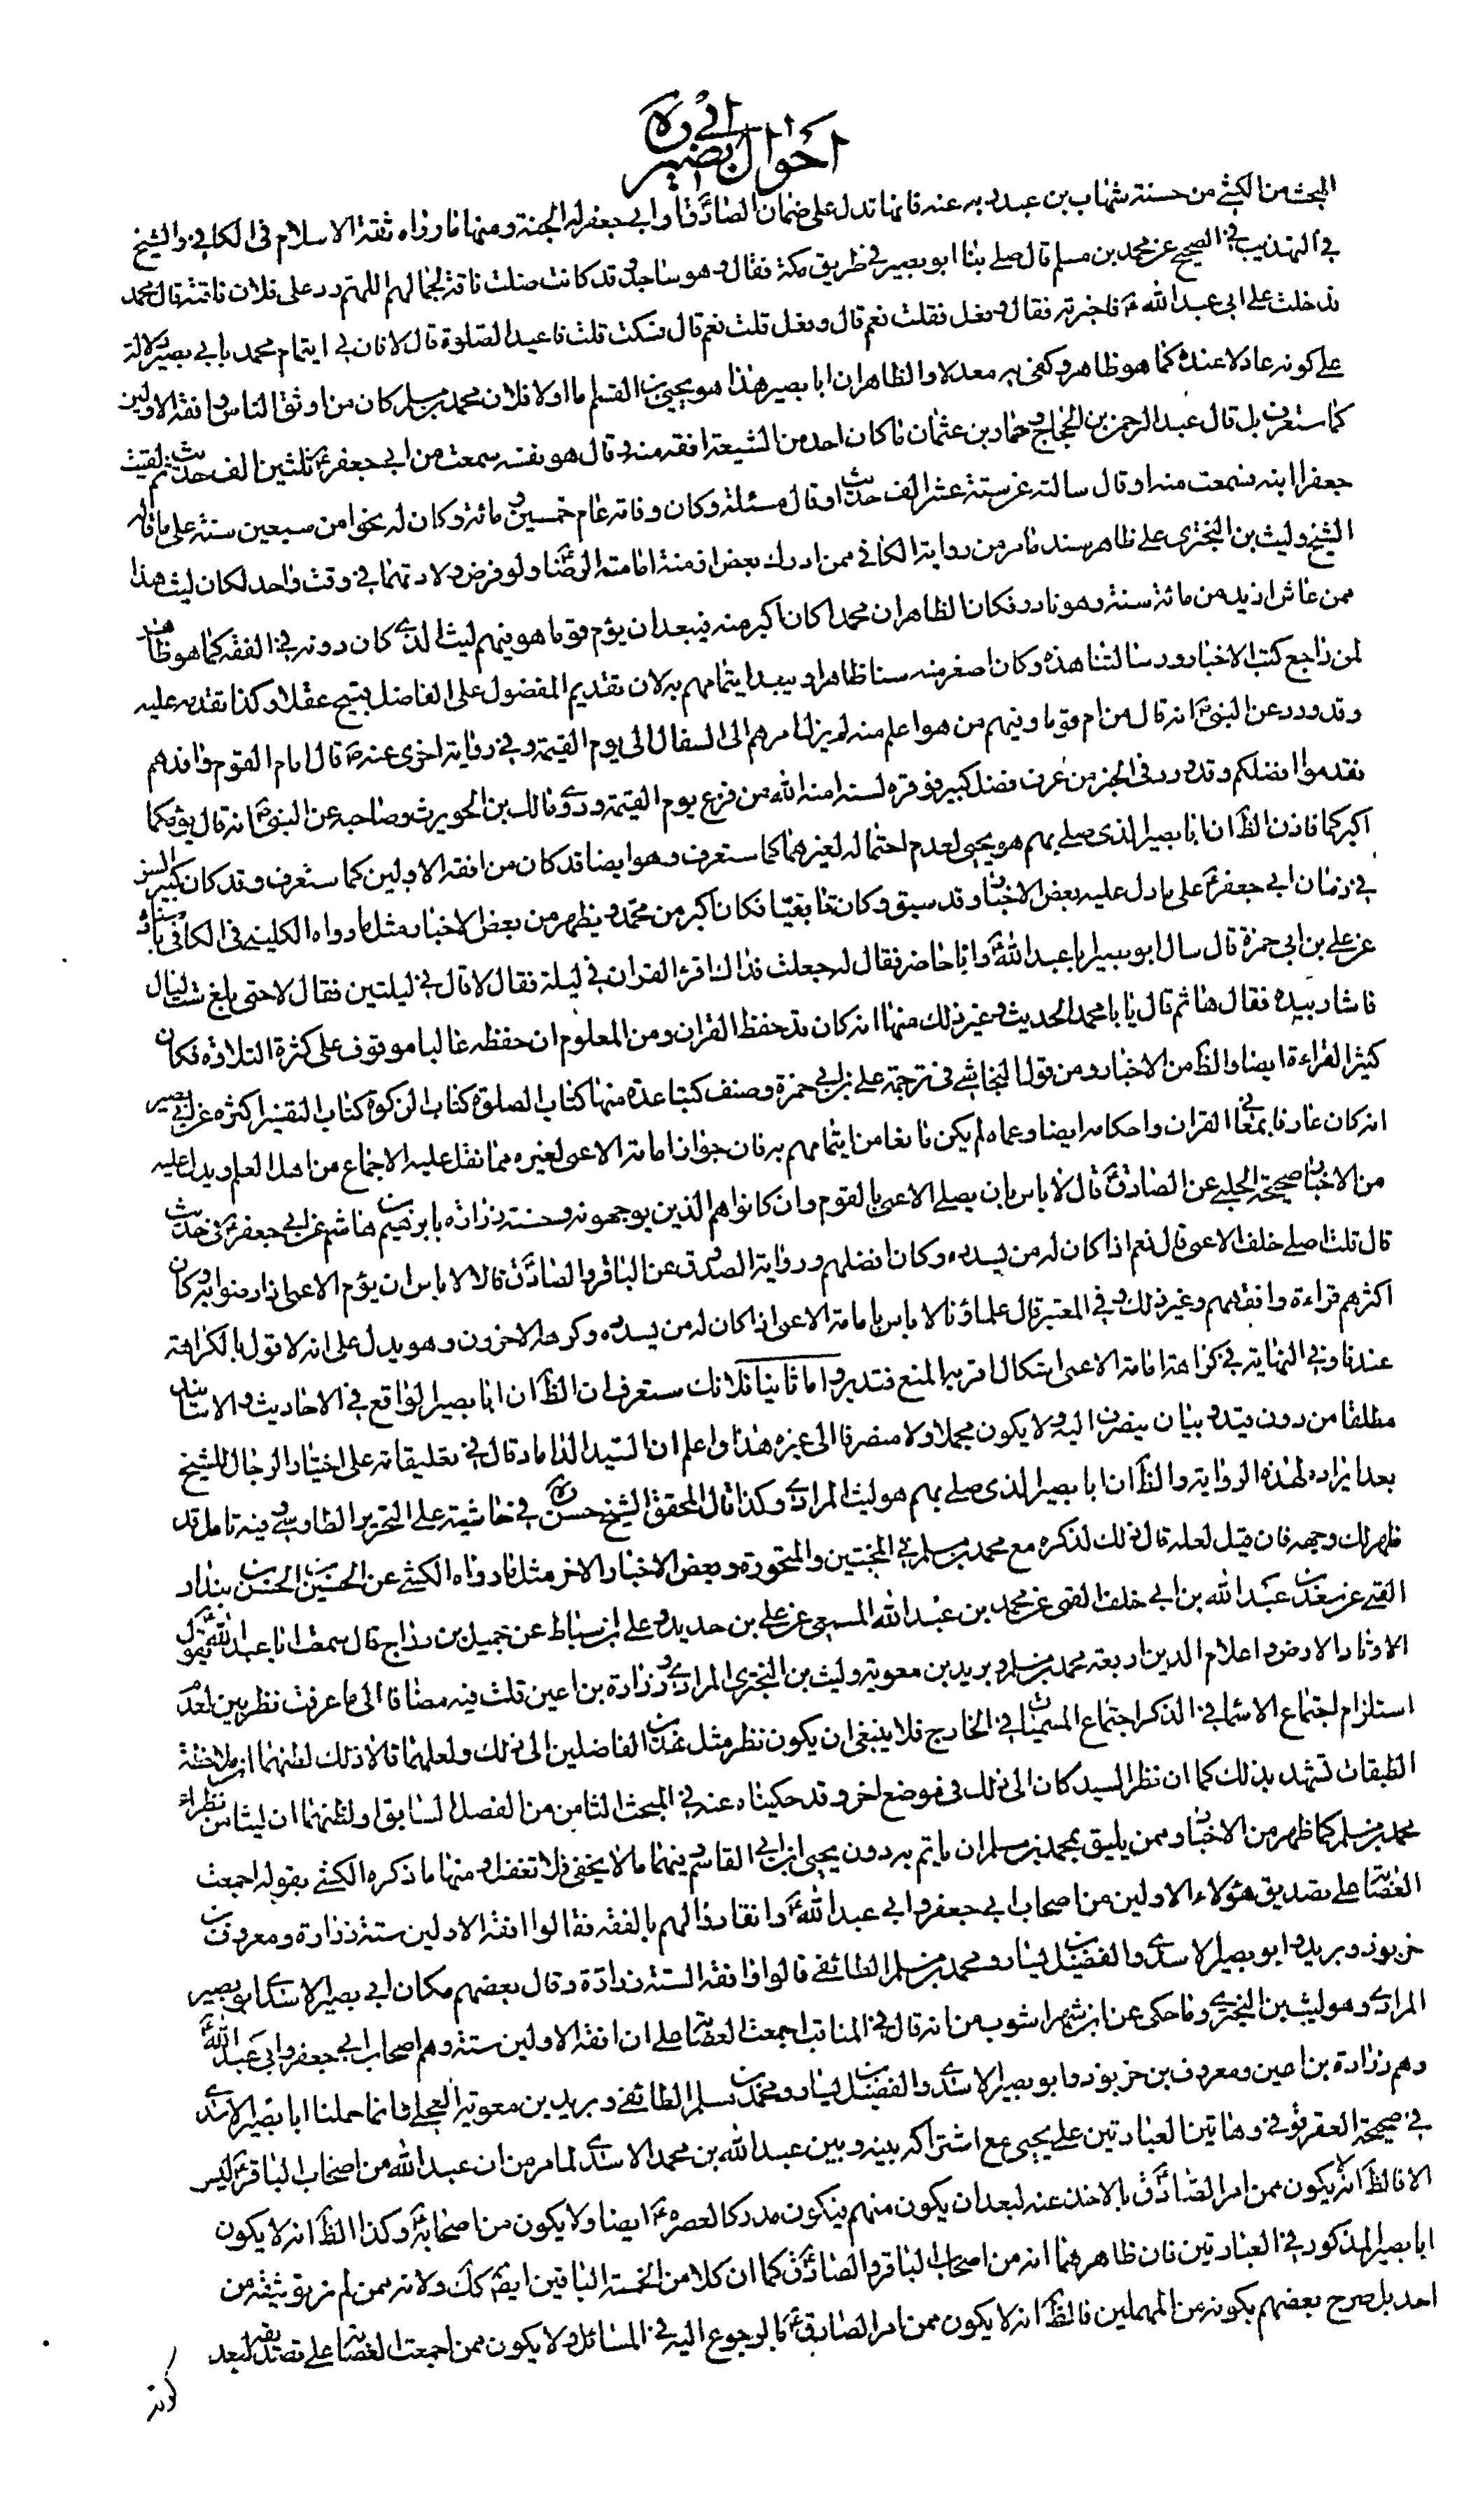 احوال ابي بصير ره
المبحث من الكشى من حسنة شهاب بن عبد ربه عنه فانها تدل على ضمان الصادقؑ او ابي جعفرؑ له الجنة ومنها ما رواه ثقة الاسلام فى الكافي والشيخ
في التهذيب في الصحيح عن محمد بن مسلم قال صلى بنا ابو بصير في طريق مكة فقال وهو ساجد وقد كانت ضلت ناقة لجمالهم اللهم رد على فلان ناقته قال محمد
فدخلت على ابي عبد الله ؑ فاخبرته فقال وفعل فقلت نعم قال وفعل قلت نعم قال فسكت قلت فاعيد الصلوة قال لا فان في ايتمام محمد بابي بصير دلالة
على كونه عادلا عنده كما هو ظاهر وكفى به معدلا والظاهر ان ابا بصير هذا هو يحيى بن القسم اما اولا فلان محمد بن مسلم كان من اوثق الناس وافقه الاولين
كما ستعرف بل قال عبد الرحمن بن الحجاج وحماد بن عثمان ما كان احد من الشيعة افقه منه وقال هو نفسه سمعت من ابي جعفرؑ ثلثين الف حديث ثم لقيت
جعفرا ابنه فسمعت منه او قال سالته عن ستة عشر الف حديث او قال مسئلة وكان وفاته عام خمسين ومائة وكان له نحو من سبعين سنة على ما قاله
الشيخ وليث بن البختري على ظاهر سند مامر من رواية الكافي ممن ادرك بعض ازمنة امامة الرضاؑ ولو فرض ولادتهما في وقت واحد لكان ليث هذا
ممن عاش ازيد من مائة سنة وهو نادر فكان الظاهر ان محمدا كان اكبر منه فيبعد ان يؤم قوما هو فيهم ليث الذي كان دونه في الفقه كما هو ظاهر
لمن راجع كتب الاخبار ورسالتنا هذه وكان اصغر منه سنا ظاهرا ويبعد ايتمامهم به لان تقديم المفضول على الفاضل قبيح عقلا وكذا تقدمه عليه
وقد ورد عن النبيؐ انه قال من ام قوما وفيهم من هو اعلم منه لم يزل امرهم الى السفال الى يوم القيمة وفي رواية اخرى عنهؐ قال امام القوم وافدهم
فقدموا افضلكم وقد ورد فى الخبر من عرف فضل كبير فوقره لسنه امنه الله من فزع يوم القيمة وروى مالك بن الحويرث وصاحبه عن النبيؐ انه قال يؤمكما
اكبركما فاذن الظ ان ابا بصير الذى صلى بهم هو يحيى لعدم احتماله لغيرهما كما ستعرف وهو ايضا قد كان من افقه الاولين كما ستعرف وقد كان كبير السن
في زمان ابي جعفرؑ على ما دل عليه بعض الاخبار وقد سبق وكان تابعيا فكان اكبر من محمد ويظهر من بعض الاخبار مثل ما رواه الكليني فى الكافي باسناده
عن علي بن ابي حمزة قال سال ابو بصير ابا عبد اللهؑ وانا حاضر فقال له جعلت فداك اقرء القران في ليلة فقال لا قال في ليلتين فقال لا حتى بلغ ست ليال
فاشار بيده فقال ها ثم قال يا با محمد الحديث وغير ذلك منها انه كان قد حفظ القران ومن المعلوم ان حفظه غالبا موقوف على كثرة التلاوة فكان
كثير القراءة ايضا والظ من الاخبار ومن قول النجاشي فى ترجمة علي بن ابي حمزة وصنف كتبا عدة منها كتاب الصلوة كتاب الزكوة كتاب التفسير اكثره عن ابي بصير
انه كان عارفا بمعاني القران واحكامه ايضا وعماه لم يكن مانعا من ايتمامهم به فان جواز امامة الاعمى لغيره مما نقل عليه الاجماع من اهل العلم ويدل عليه
من الاخبار صحيحة الحلبي عن الصادقؑ قال لا باس بان يصلى الاعمى بالقوم وان كانوا هم الذين يوجهونه وحسنة زرارة بابرهيم بن هاشم عن ابي جعفرؑ في حديث
قال قلت اصلى خلف الاعمى قال نعم اذا كان له من يسدده وكان افضلهم ورواية الصدوق عن الباقر والصادقؑ قالا لا باس ان يؤم الاعمى اذا رضوا به وكان
اكثرهم قراءة وافقههم وغير ذلك وفي المعتبر قال علماؤنا لا باس بامامة الاعمى اذا كان له من يسدده وكرهه الاخرون وهو يدل على انه لا قول بالكراهة
عندنا وفي النهاية في كراهة امامة الاعمى اشكال اقربه المنع فتدبر واما ثانيا فلانك ستعرف ان الظ ان ابا بصير الواقع في الاحاديث والاسانيد
مطلقا من دون قيد وبيان ينصرف اليه ولا يكون مجملا ولا منصرفا الى غيره هذا واعلم ان السيد الداماد قال في تعليقاته على اختيار الرجال للشيخ
بعد ايراده لهذه الرواية والظ ان ابا بصير الذى صلى بهم هو ليث المرادي وكذا قال المحقق الشيخ حسن ره في حاشيته على التحرير الطاوسي وفيه تامل قد
ظهر لك وجهه فان قيل لعله قال ذلك لذكره مع محمد بن مسلم في المخبتين والمتحورة وبعض الاخبار الاخر مثل ما رواه الكشي عن الحسين بن الحسن بن بندار
القمي عن سعد بن عبد الله بن ابي خلف القمي عن محمد بن عبد الله المسمعي عن علي بن حديد وعلي بن اسباط عن جميل بن دراج قال سمعت ابا عبد اللهؑ يقول
الاوتاد الارض واعلام الدين اربعة محمد بن مسلم وبريد بن معوية وليث بن البختري المرادي وزرارة بن اعين قلت فيه مضافا الى ما عرفت نظر بين لعدم
استلزام اجتماع الاسما في الذكر اجتماع المسميات في الخارج فلا ينبغي ان يكون نظر مثل هذين الفاضلين الى ذلك ولعلهما قالا ذلك لظنهما ان ملاحظة
الطبقات تشهد بذلك كما ان نظر السيد كان الى ذلك في موضع اخر وقد حكيناه عنه في المبحث الثامن من الفصل السابق او لظنهما ان ليثا من نظراء
محمد بن مسلم كما ظهر من الاخبار وممن يليق بمحمد بن مسلم ان ياتم به دون يحيى بن ابي القاسم وفيهما ما لا يخفى فلا تغفل ومنها ما ذكره الكشي بقوله اجمعت
العصابة على تصديق هؤلاء الاولين من اصحاب ابي جعفر وابي عبد اللهؑ وانقادوا لهم بالفقه فقالوا افقه الاولين ستة زرارة ومعروف بن
خربوذ وبريد وابو بصير الاسدي والفضيل بن يسار ومحمد بن مسلم الطائفي قالوا وافقه الستة زرارة وقال بعضهم مكان ابي بصير الاسدي ابو بصير
المرادي وهو ليث بن البختري وما حكى عن ابن شهراشوب من انه قال في المناقب اجمعت العصابة على ان افقه الاولين ستة وهم اصحاب ابي جعفر وابي عبد اللهؑ
وهم زرارة بن اعين ومعروف بن خربوذ وابو بصير الاسدي والفضيل بن يسار ومحمد بن مسلم الطائفي وبريد بن معوية العجلي وانما حملنا ابا بصير الاسدي
في صحيحة العقرقوفي وهاتين العبارتين على يحيى مع اشتراكه بينه وبين عبد الله بن محمد الاسدي لما مر من ان عبد الله من اصحاب الباقرؑ ليس
الا فالظ انه لا يكون ممن امر الصادقؑ بالاخذ عنه لبعد ان يكون منهم فيكون مدركا لعصرهؑ ايضا ولا يكون من اصحابهؑ وكذا الظ انه لا يكون
ابا بصير المذكور في العبارتين فان ظاهرهما انه من اصحاب الباقر والصادقؑ كما ان كلا من الخمسة الباقين ايضا كك ولانه ممن لم نر توثيقه من
احد بل صرح بعضهم بكونه من المهملين فالظ انه لا يكون ممن امر الصادقؑ بالرجوع اليه في المسائل ولا يكون ممن اجمعت العصابة على تصديقه لبعد
كونه